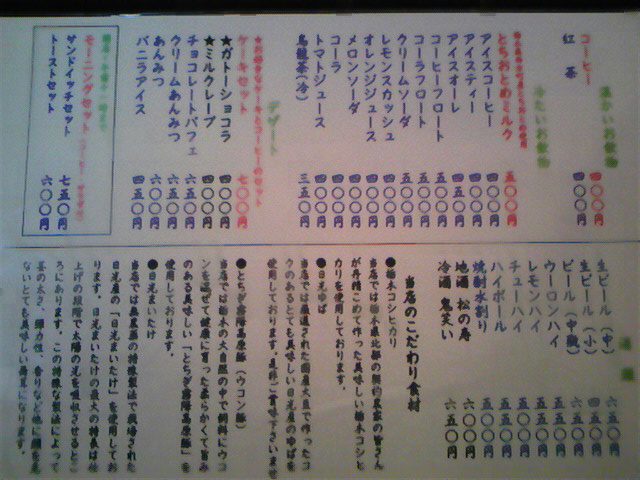 温かいお飲物
コーヒー 四〇〇円
紅茶 四〇〇円
冷たいお飲物
とちおとめミルク 五〇〇円
アイスコーヒー 四〇〇円
アイスティー 四〇〇円
アイスオーレ 四五〇円
コーヒーフロート 五〇〇円
コーラフロート 五〇〇円
クリームソーダ 五〇〇円
レモンスカッシュ 四〇〇円
オレンジジュース 四〇〇円
メロンソーダ 四〇〇円
コーラ 四〇〇円
トマトジュース 四〇〇円
烏龍茶(冷) 三五〇円
デザート
★お好きなケーキとコーヒーのセット
ケーキセット 七〇〇円
★ガトーショコラ 四〇〇円
★ミルクレープ 四〇〇円
チョコレートパフェ 六五〇円
クリームあんみつ 六五〇円
あんみつ 六〇〇円
バニラアイス 四五〇円
モーニングセット
サンドイッチセット 七五〇円
トーストセット 六〇〇円
生ビール(中) 六五〇円
生ビール(小) 四五〇円
ビール(中瓶) 五五〇円
ウーロンハイ 五五〇円
レモンハイ 五五〇円
チューハイ 五五〇円
ハイボール 五五〇円
焼酎水割り 五五〇円
地酒 松の寿 六五〇円
冷酒 鬼笑い 六五〇円
当店のこだわり食材
●栃木コシヒカリ
当店では栃木県北部の契約農家の皆さん
が丹精こめて作った美味しい栃木コシヒ
カリを使用しております。
●日光ゆば
当店では厳選された国産大豆で作ったコ
クのあるとても美味しい日光産のゆばを
使用しております。是非ご賞味下さいませ
●とちぎ霧降高原豚(ウコン豚)
当店では栃木の大自然の中で飼料にウコ
ンを混ぜて健康に育った柔らかくて旨み
のある美味しい「とちぎ霧降高原豚」を
使用しております。
●日光まいたけ
当店では無農薬の特殊な製法で栽培された
日光産の「日光まいたけ」を使用してお
ります。日光まいたけの最大の特長は仕
上げの段階で太陽の光を吸収させるとこ
ろにあります。この特殊な製法によって
ないとても美味しい舞茸になります。